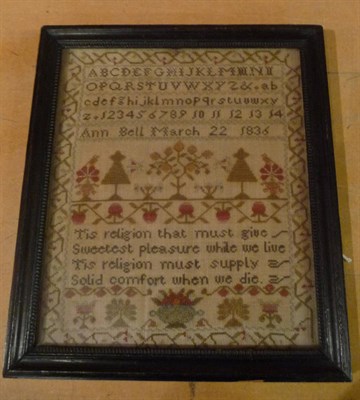 ABCDEFGHIJKLMNO
OPQRSTUVWXYZ&ab
cdefghijklmnopqrstuvwxy
z1234567891011121314
Ann Bell March 22 1836
'Tis religion that must give
Sweetest pleasure while we live
Tis religion must supply
Solid comfort when we die.